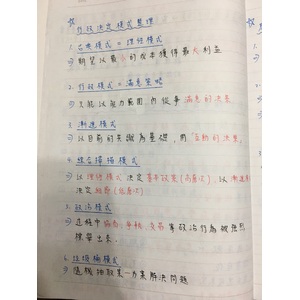 ☆ 行政決定模式整理
1. 古典模式 = 理性模式
⇒ 期望以最小的成本獲得最大利益
2. 行政模式 = 滿意策略
⇒ 只能以能力範圍內從事滿意的決策
3. 漸進模式
⇒ 以目前的共識為基礎，用互動的決策
4. 綜合掃描模式
⇒ 以理性模式決定基本政策(高層次)，以漸進模
決定細節(低層次)
5. 政治模式
⇒ 過程中協商、爭執、交易等政治行為被強烈
標舉出來.
6. 垃圾桶模式
⇒ 隨機抽取某一方案解決問題